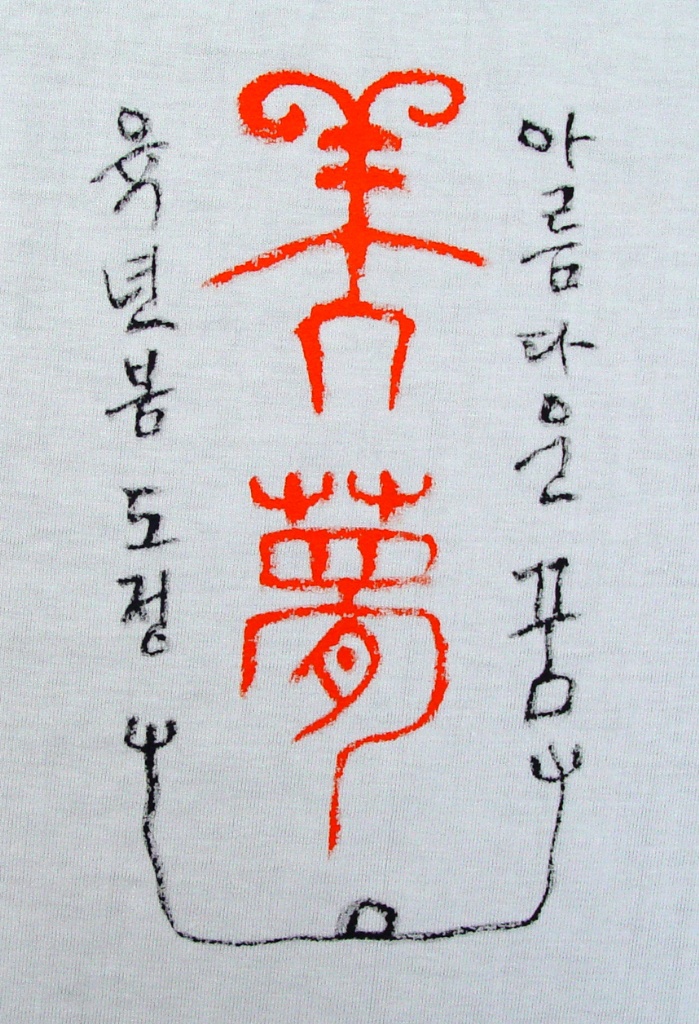 아름다운 꿈
美夢
육년봄 도정